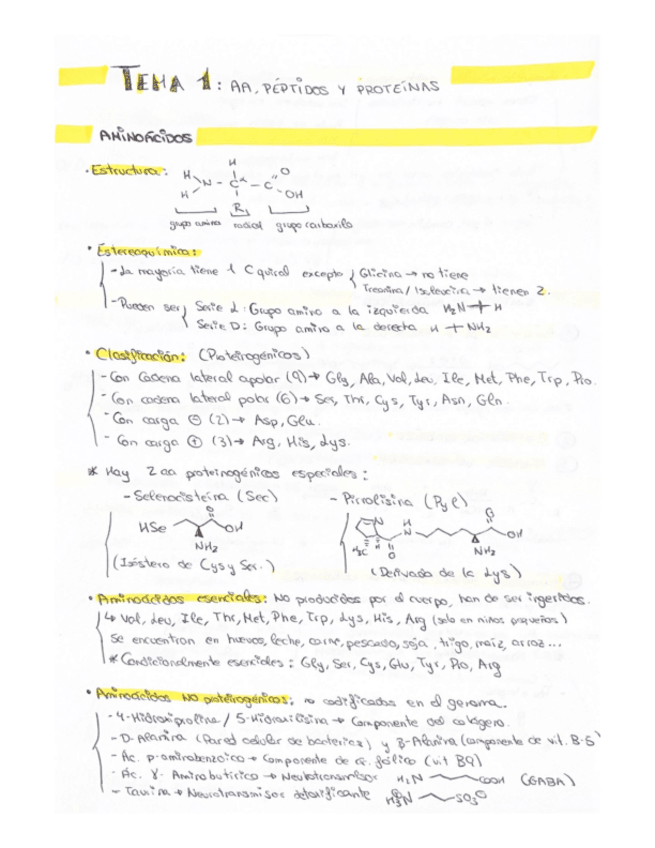 TEMA 1: AA, PÉPTIDOS Y PROTEÍNAS
AMINOÁCIDOS
· Estructura: H H O
H N - Cα - C OH
R
grupo amino radical grupo carboxilo
· Estereoquímica:
- La mayoría tiene 1 C quiral excepto Glicina → no tiene
Treonina / Isoleucina → tienen 2.
- Pueden ser Serie L: Grupo amino a la izquierda H₂N + H
Serie D: Grupo amino a la derecha H + NH₂
· Clasificación: (Proteinogénicos)
- Con cadena lateral apolar (9) → Gly, Ala, Val, Leu, Ile, Met, Phe, Trp, Pro.
- Con cadena lateral polar (6) → Ser, Thr, Cys, Tyr, Asn, Gln.
- Con carga ⊖ (2) → Asp, Glu.
- Con carga ⊕ (3) → Arg, His, Lys.
* Hay 2 aa proteinogénicos especiales:
- Selenocisteína (Sec) - Pirrolisina (Pyl)
HSe O OH NH₂ N H₃C H O H N O OH NH₂
(Isóstero de Cys y Ser.) (Derivado de la Lys)
· Aminoácidos esenciales: No producidos por el cuerpo, han de ser ingeridos.
↳ Val, Leu, Ile, Thr, Met, Phe, Trp, Lys, His, Arg (solo en niños pequeños)
Se encuentran en huevos, leche, carne, pescado, soja, trigo, maíz, arroz...
* Condicionalmente esenciales: Gly, Ser, Cys, Glu, Tyr, Pro, Arg
· Aminoácidos no proteinogénicos: no codificados en el genoma.
- 4-Hidroxiprolina / 5-Hidroxilisina → Componente del colágeno.
- D-Alanina (Pared celular de bacterias) y β-Alanina (componente de vit. B-5)
- Ác. p-aminobenzoico → Componente de ác. fólico (vit B9)
- Ác. γ-Aminobutírico → Neurotransmisor H₂N COOH (GABA)
- Taurina → Neurotransmisor detoxificante H₃N⊕ SO₃⊖